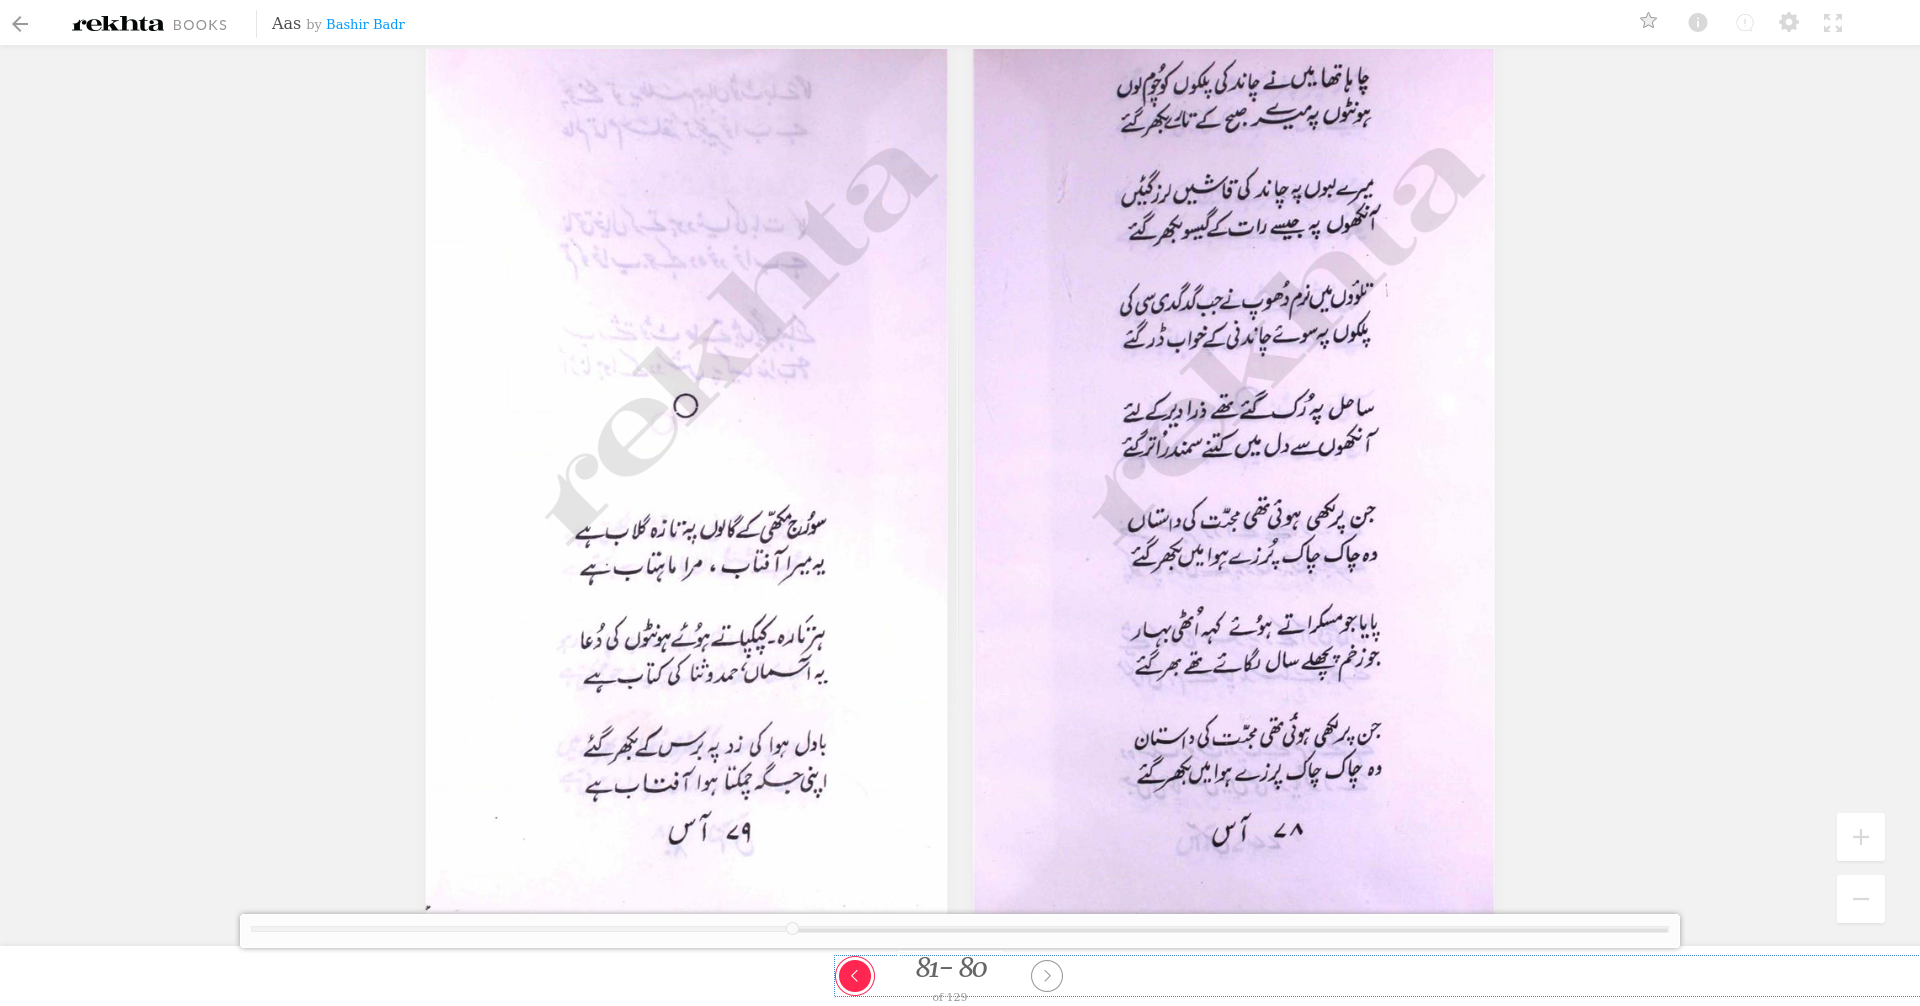 rekhta BOOKS Aas by Bashir Badr
چاہا تھا میں نے چاند کی پلکوں کو چُوم لوں
ہونٹوں پہ میرے صبح کے تارے بکھر گئے
میرے لبوں پہ چاند کی قاشیں لرز گئیں
آنکھوں پہ جیسے رات کے گیسو بکھر گئے
تلوؤں میں نرم دُھوپ نے جب گدگدی سی کی
پلکوں پہ سوئے چاندنی کے خواب ڈر گئے
ساحل پہ رُک گئے تھے ذرا دیر کے لئے
آنکھوں سے دل میں کتنے سمندر اُتر گئے
جن پر لکھی ہوئی تھی محبّت کی داستاں
وہ چاک چاک پُرزے ہوا میں بکھر گئے
پایا جو مسکراتے ہوُئے کہہ اُٹھی بہار
جو زخم پچھلے سال لگائے تھے بھر گئے
جن پر لکھی ہوئی تھی محبّت کی داستان
وہ چاک چاک پرزے ہوا میں بکھر گئے
۷۸ آس
سوُرج مکھّی کے گالوں پہ تازہ گلاب ہے
یہ میرا آفتاب، مرا ماہتاب ہے
ہنزہ کپکپاتے ہوُئے ہونٹوں کی دُعا
یہ آسماں حمد و ثنا کی کتاب ہے
بادل ہوا کی زد پہ برس کے بکھر گئے
اپنی جگہ چمکتا ہوا آفتاب ہے
۷۹ آس
rekhta
rekhta
81- 80
of 129